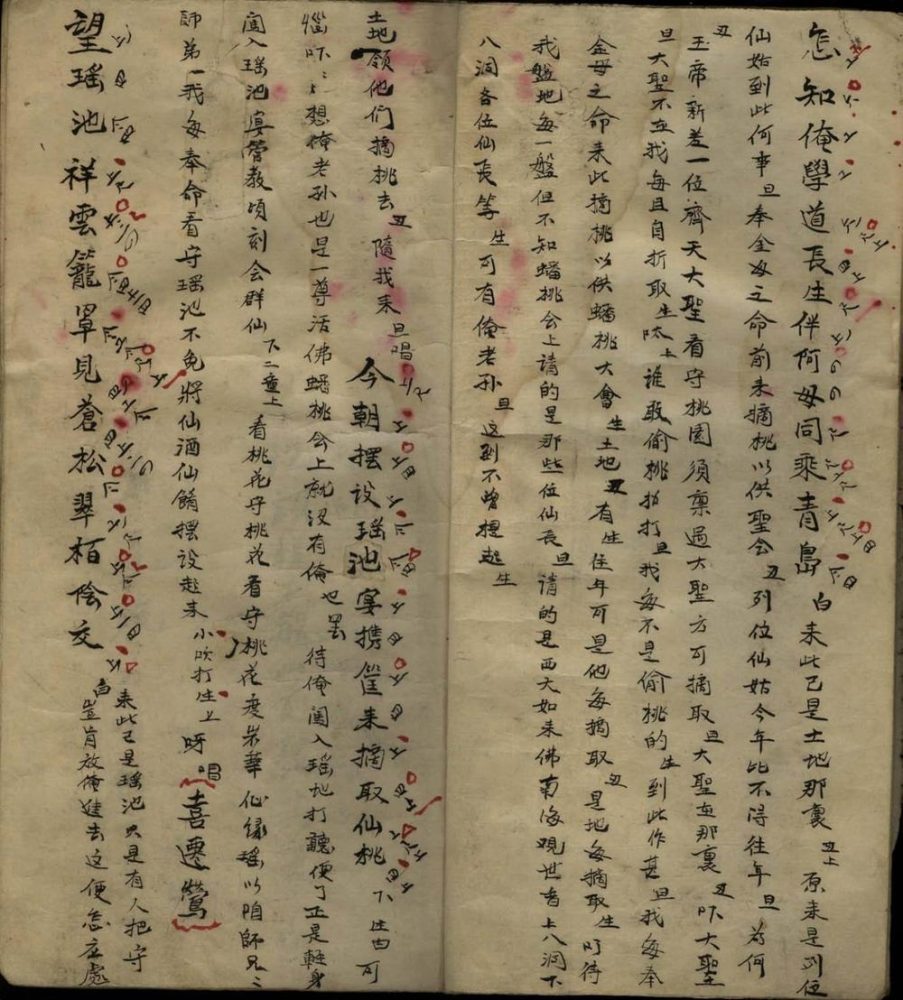 怎知俺學道長生伴阿母同乘青島 白 來此已是土地那裏 丑上 原来是列位
仙姑到此何事 旦 奉金母之命前来摘桃以供聖会 丑 列位仙姑今年比不得往年 旦 為何
丑 玉帝新差一位齊天大聖看守桃園須禀過大聖方可摘取 旦 大聖在那裏 丑 吓大聖
旦 大聖不在我每且自折取 生上 呔誰敢偷桃招打 旦 我每不是偷桃的 生 到此作甚 旦 我每奉
金母之命来此摘桃以供蟠桃大會 生 土地 丑 有 生 往年可是他每摘取 丑 是他每摘取 生 叮待
我盤他每一盤但不知蟠桃会上請的是那些位仙長 旦 請的是西天如来佛南海观世音上八洞下
八洞各位仙長等 生 可有俺老孫 旦 这到不曾提起 生
土地領他們摘桃去 丑 隨我来 旦唱 今朝摆设瑤池宴携筐来摘取仙桃 下 生白 可
惱吓、想俺老孫也是一尊活佛蟠桃会上就没有俺 也罢 待俺闖入瑶地打聽便了正是輕身
闖入瑶池宴管教頃刻会群仙 下二童上 看桃花守桃花看守桃花度岁華 仙緣瑶以 咱師兄、
師弟 我每奉命看守瑶池不免將仙酒仙餚摆設起来 小吹打生上 呀 唱 喜遷鶯
望瑶池祥雲籠罩見蒼松翠栢陰交 白 来此已是瑶池只是有人把守
豈肯放俺進去这便怎広處